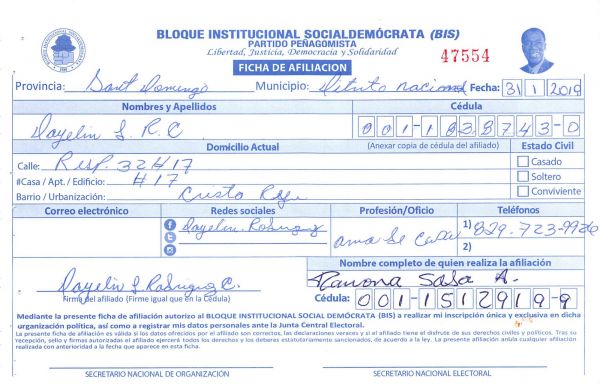 BLOQUE INSTITUCIONAL SOCIALDEMÓCRATA (BIS)
PARTIDO PEÑAGOMISTA
Libertad, Justicia, Democracia y Solidaridad
47554
FICHA DE AFILIACION
Provincia: Sant Domingo Municipio: Ditrito nacional Fecha: 31 1 2019
Nombres y Apellidos Cédula
Dayelin S. R. C 001-1838743-0
Domicilio Actual (Anexar copia de cédula del afiliado) Estado Civil
Calle: Resp. 32 #17 Casado
#Casa / Apt. / Edificio: #17 Soltero
Barrio / Urbanización: Cristo Rey Conviviente
Correo electrónico Redes sociales Profesión/Oficio Teléfonos
Dayelin. Rodriguez ama de casa 1) 829-723-9926
2)
Nombre completo de quien realiza la afiliación
Dayelin S. Rodriguez C. Ramona Sosa A.
Firma del afiliado (Firme igual que en la Cédula) Cédula: 001-1512919-9
Mediante la presente ficha de afiliación autorizo al BLOQUE INSTITUCIONAL SOCIAL DEMÓCRATA (BIS) a realizar mi inscripción única y exclusiva en dicha
organización política, así como a registrar mis datos personales ante la Junta Central Electoral.
La presente ficha de afiliación es válida si los datos ofrecidos por el afiliado son correctos, las declaraciones veraces y si el afiliado tiene el disfrute de sus derechos civiles y políticos. Tras su
recepción, sello y firmas autorizadas el afiliado ejercerá todos los derechos y los deberes estatutariamente sancionados, de acuerdo a la ley. La presente afiliación anula cualquier afiliación
realizada con anterioridad a la fecha que aparece en esta ficha.
SECRETARIO NACIONAL DE ORGANIZACIÓN SECRETARIO NACIONAL ELECTORAL